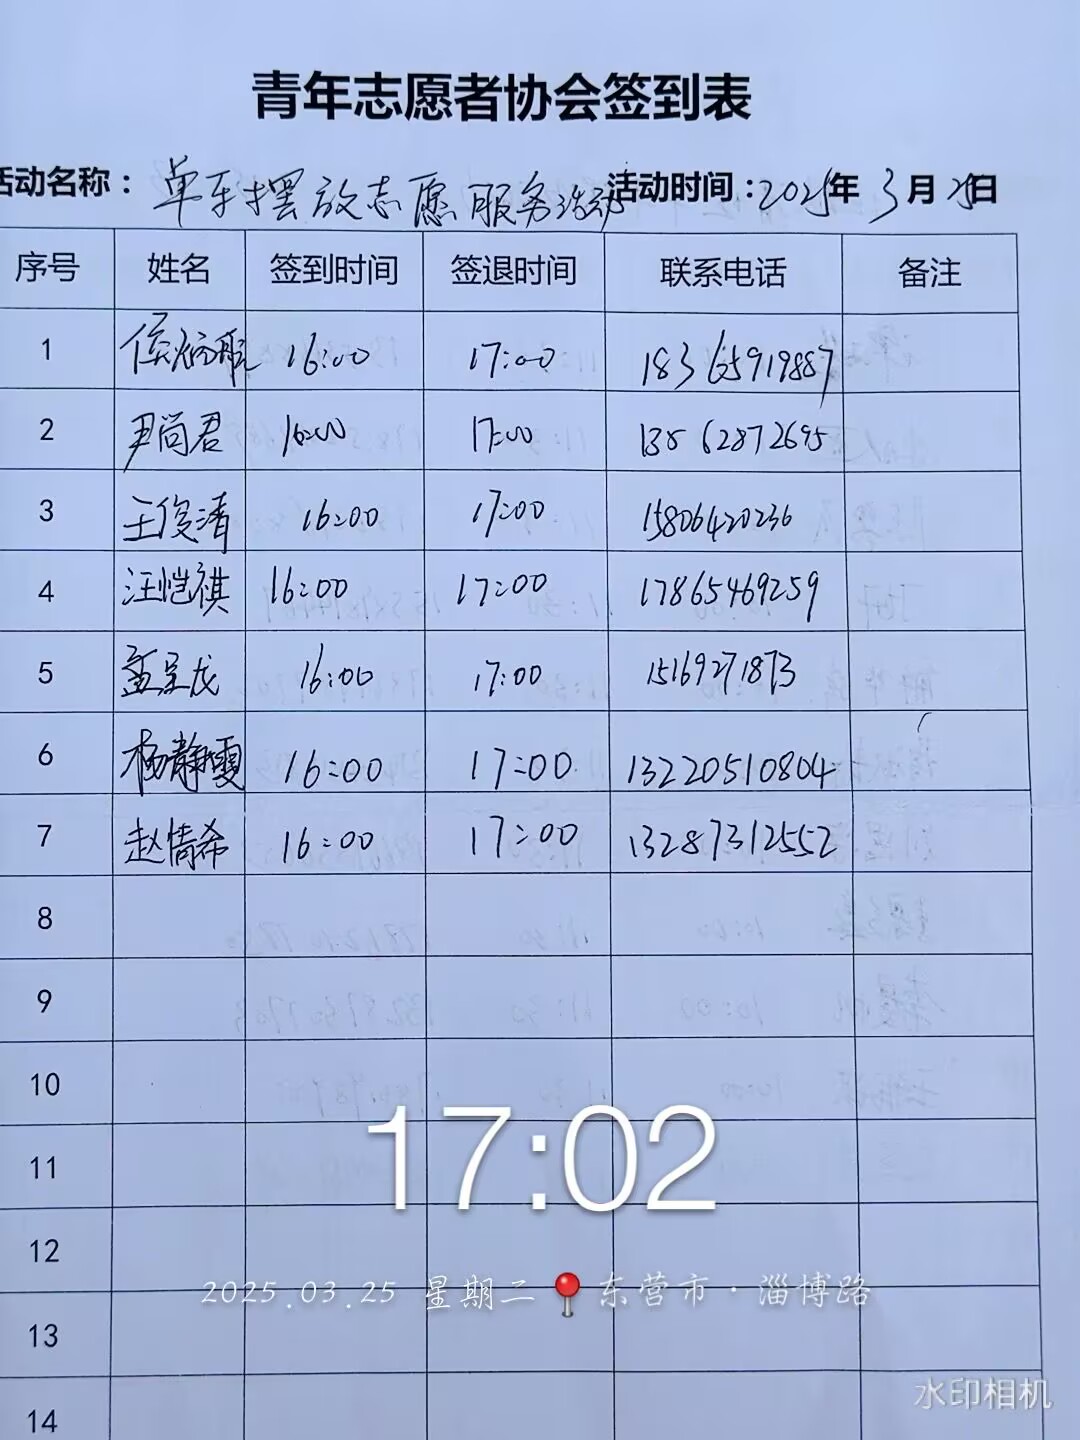 青年志愿者协会签到表
活动名称：单车摆放志愿服务活动 活动时间：2025年3月25日
序号 姓名 签到时间 签退时间 联系电话 备注
1 侯炳 16:00 17:00 18365919887
2 尹尚君 16:00 17:00 13562872695
3 王俊清 16:00 17:00 15806420236
4 汪恺祺 16:00 17:00 17865469259
5 孟呈龙 16:00 17:00 15169271873
6 杨静雯 16:00 17:00 13220510804
7 赵情希 16:00 17:00 13287312552
8
9
10
17:02
11
12
2025.03.25 星期二 东营市·淄博路
13
水印相机
14